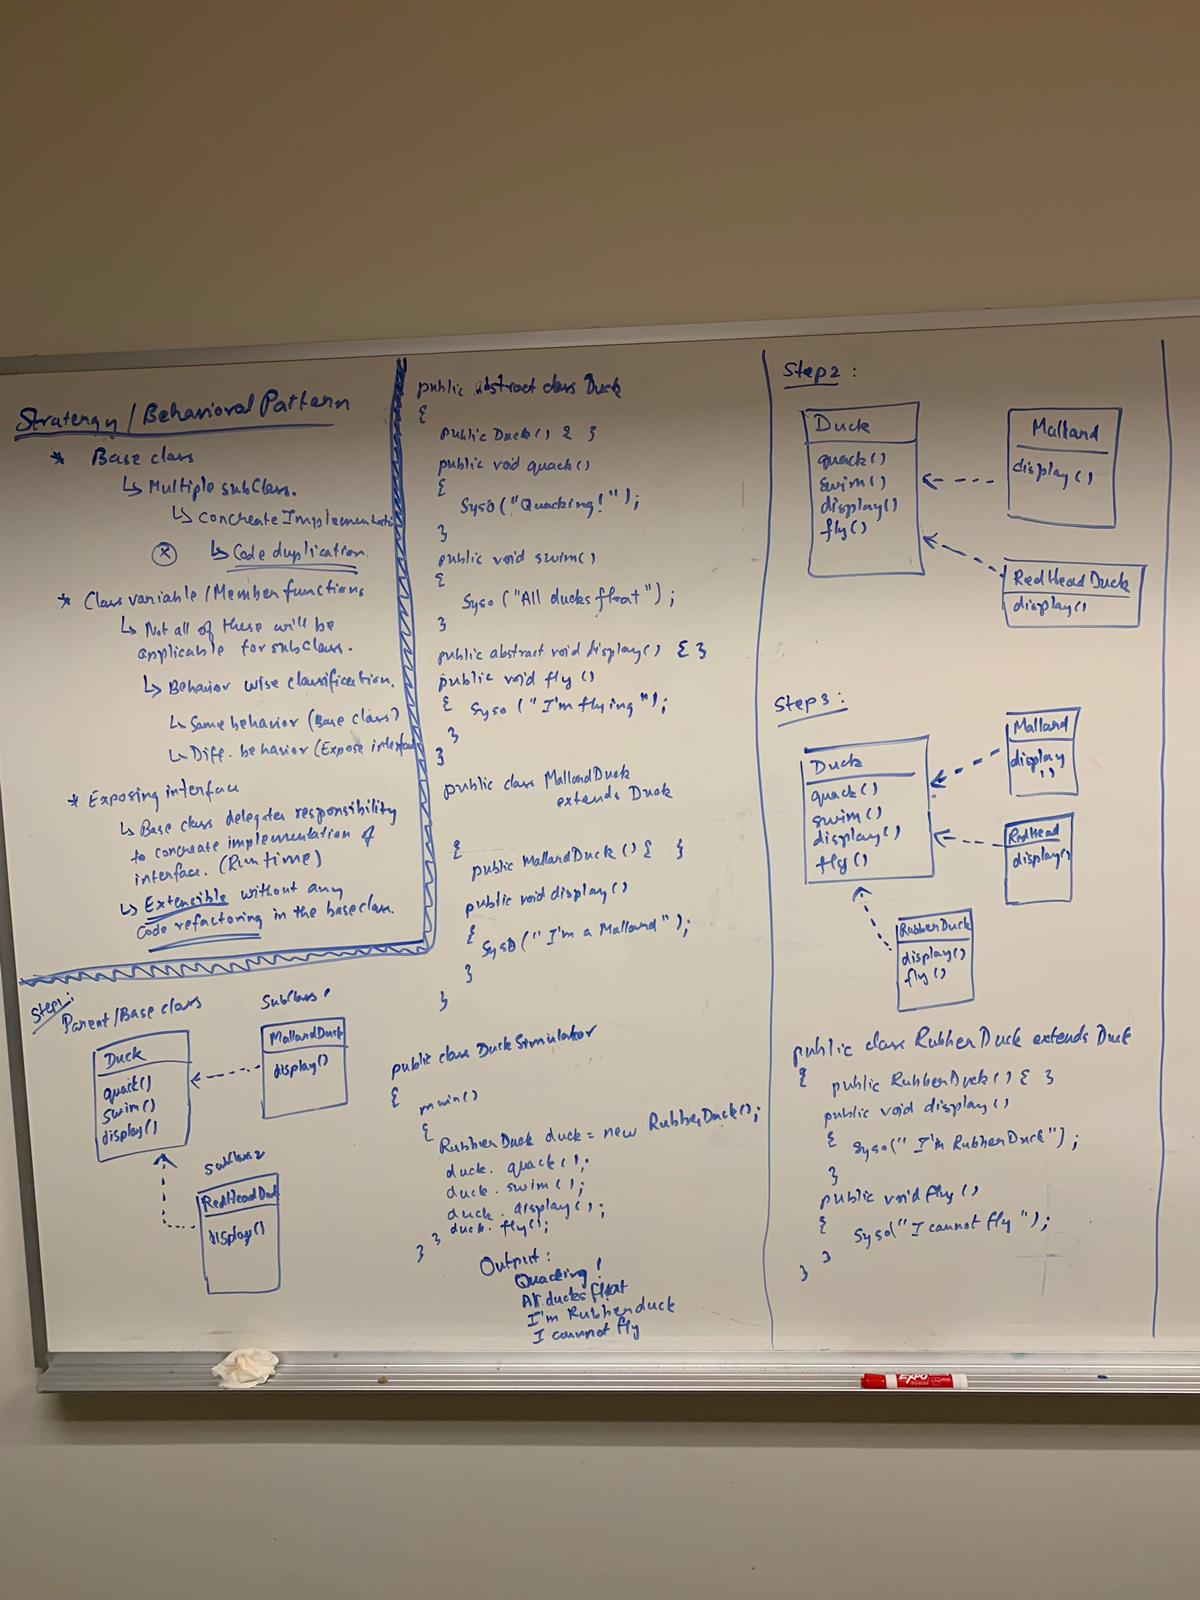 Strategy / Behavioral Pattern
* Base class
↳ Multiple subclass.
↳ Concreate Implementati
ⓧ ↳ Code duplication.
* Class variable / Member functions
↳ Not all of these will be
applicable for subclass.
↳ Behavior wise classification.
↳ Same behavior (Base class)
↳ Diff. behavior (Expose interfac
* Exposing interface
↳ Base class delegates responsibility
to concreate implementation of
interface. (Run time)
↳ Extensible without any
Code refactoring in the base class.
Step1:
Parent/Base class
Duck
quack()
swim()
display()
Subclass1
MallardDuck
display()
Subclass2
RedHeadDuck
display()
public abstract class Duck
{
public Duck() { }
public void quack()
{
Syso("Quacking!");
}
public void swim()
{
Syso ("All ducks float");
}
public abstract void display() { }
public void fly ()
{ Syso ("I'm flying");
}
}
public class MallardDuck
extends Duck
{
public MallardDuck () { }
public void display()
{
Syso("I'm a Mallard");
}
}
public class DuckSimulator
{
main()
{
RubberDuck duck = new RubberDuck();
duck. quack();
duck. swim();
duck. display();
duck. fly();
} }
Output:
Quacking!
All ducks float
I'm Rubberduck
I cannot fly
Step2:
Duck
quack()
swim()
display()
fly()
Mallard
display()
RedHeadDuck
display()
Step3:
Duck
quack()
swim()
display()
fly()
Mallard
display
()
RedHead
display()
RubberDuck
display()
fly()
public class RubberDuck extends Duck
{ public RubberDuck() { }
public void display()
{ Syso("I'm RubberDuck");
}
public void fly()
{ Syso("I cannot fly");
}
}
EXPO